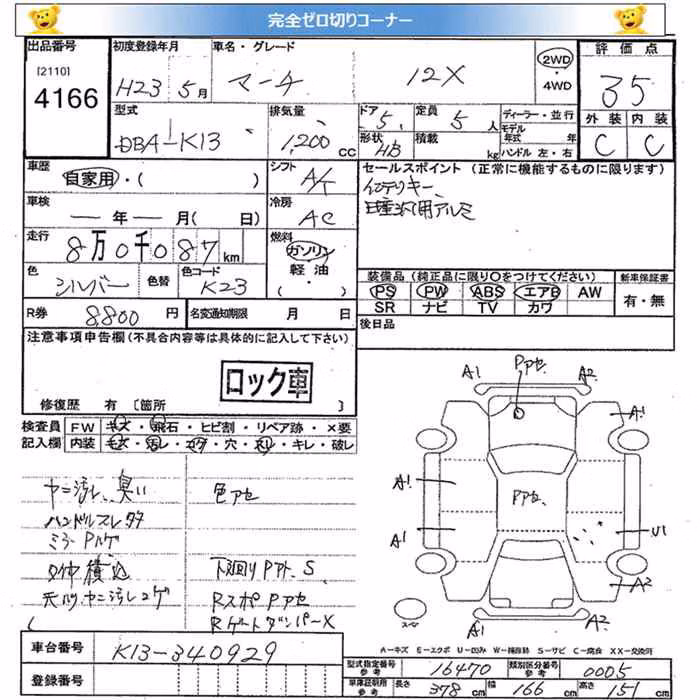 完全ゼロ切りコーナー
出品番号 初度登録年月 車名・グレード 評価点
[2110]
4166
H23 5月 マーチ 12X 2WD・4WD 35
外装 内装
C C
型式 排気量 ドア 定員 ディーラー・並行
DBA-K13 1,200 CC 5 5人 モデル年式 年
形状 積載 ハンドル 左・右
HB kg
車歴 シフト セールスポイント (正常に機能するものに限ります)
自家用・( ) A/T インテリキー
車検 冷房 社外アルミ
― 年 ― 月(日) AC
走行 燃料
8万0千087km ガソリン
軽油
・( )
色 シルバー 色替 色コード K23
装備品 (純正品に限り○をつけてください) 新車保証書
PS PW ABS エアB AW 有・無
SR ナビ TV カワ
R券 8,800円 名変通知期限 月 日
後日品
注意事項申告欄(不具合内容等は具体的に記入して下さい)
ロック車
修復歴 有 [箇所 ]
検査員 FW キズ・飛石・ヒビ割・リペア跡・×要
記入欄 内装 キズ・汚レ・コゲ・穴・スレ・キレ・破レ
ヤニ汚レ、臭い 色アセ
ハンドルスレ
ミラーPハゲ
積込 下廻り S
天バリ ヤニ汚レコゲ RスポPアセ
( RゲートダンパーX
A1 Pアセ A2
A1
A1 Pアセ
A1 U1
A2
スペアー
A1 A2
A-キズ E-エクボ U-凹み W-補修跡 S-サビ C-腐食 XX-交換済
車台番号 K13-340929
型式指定番号 参考 16470 類別区分番号 参考 0005
登録番号
車庫証明用 参考 長さ 378cm 幅 166cm 高さ 151cm